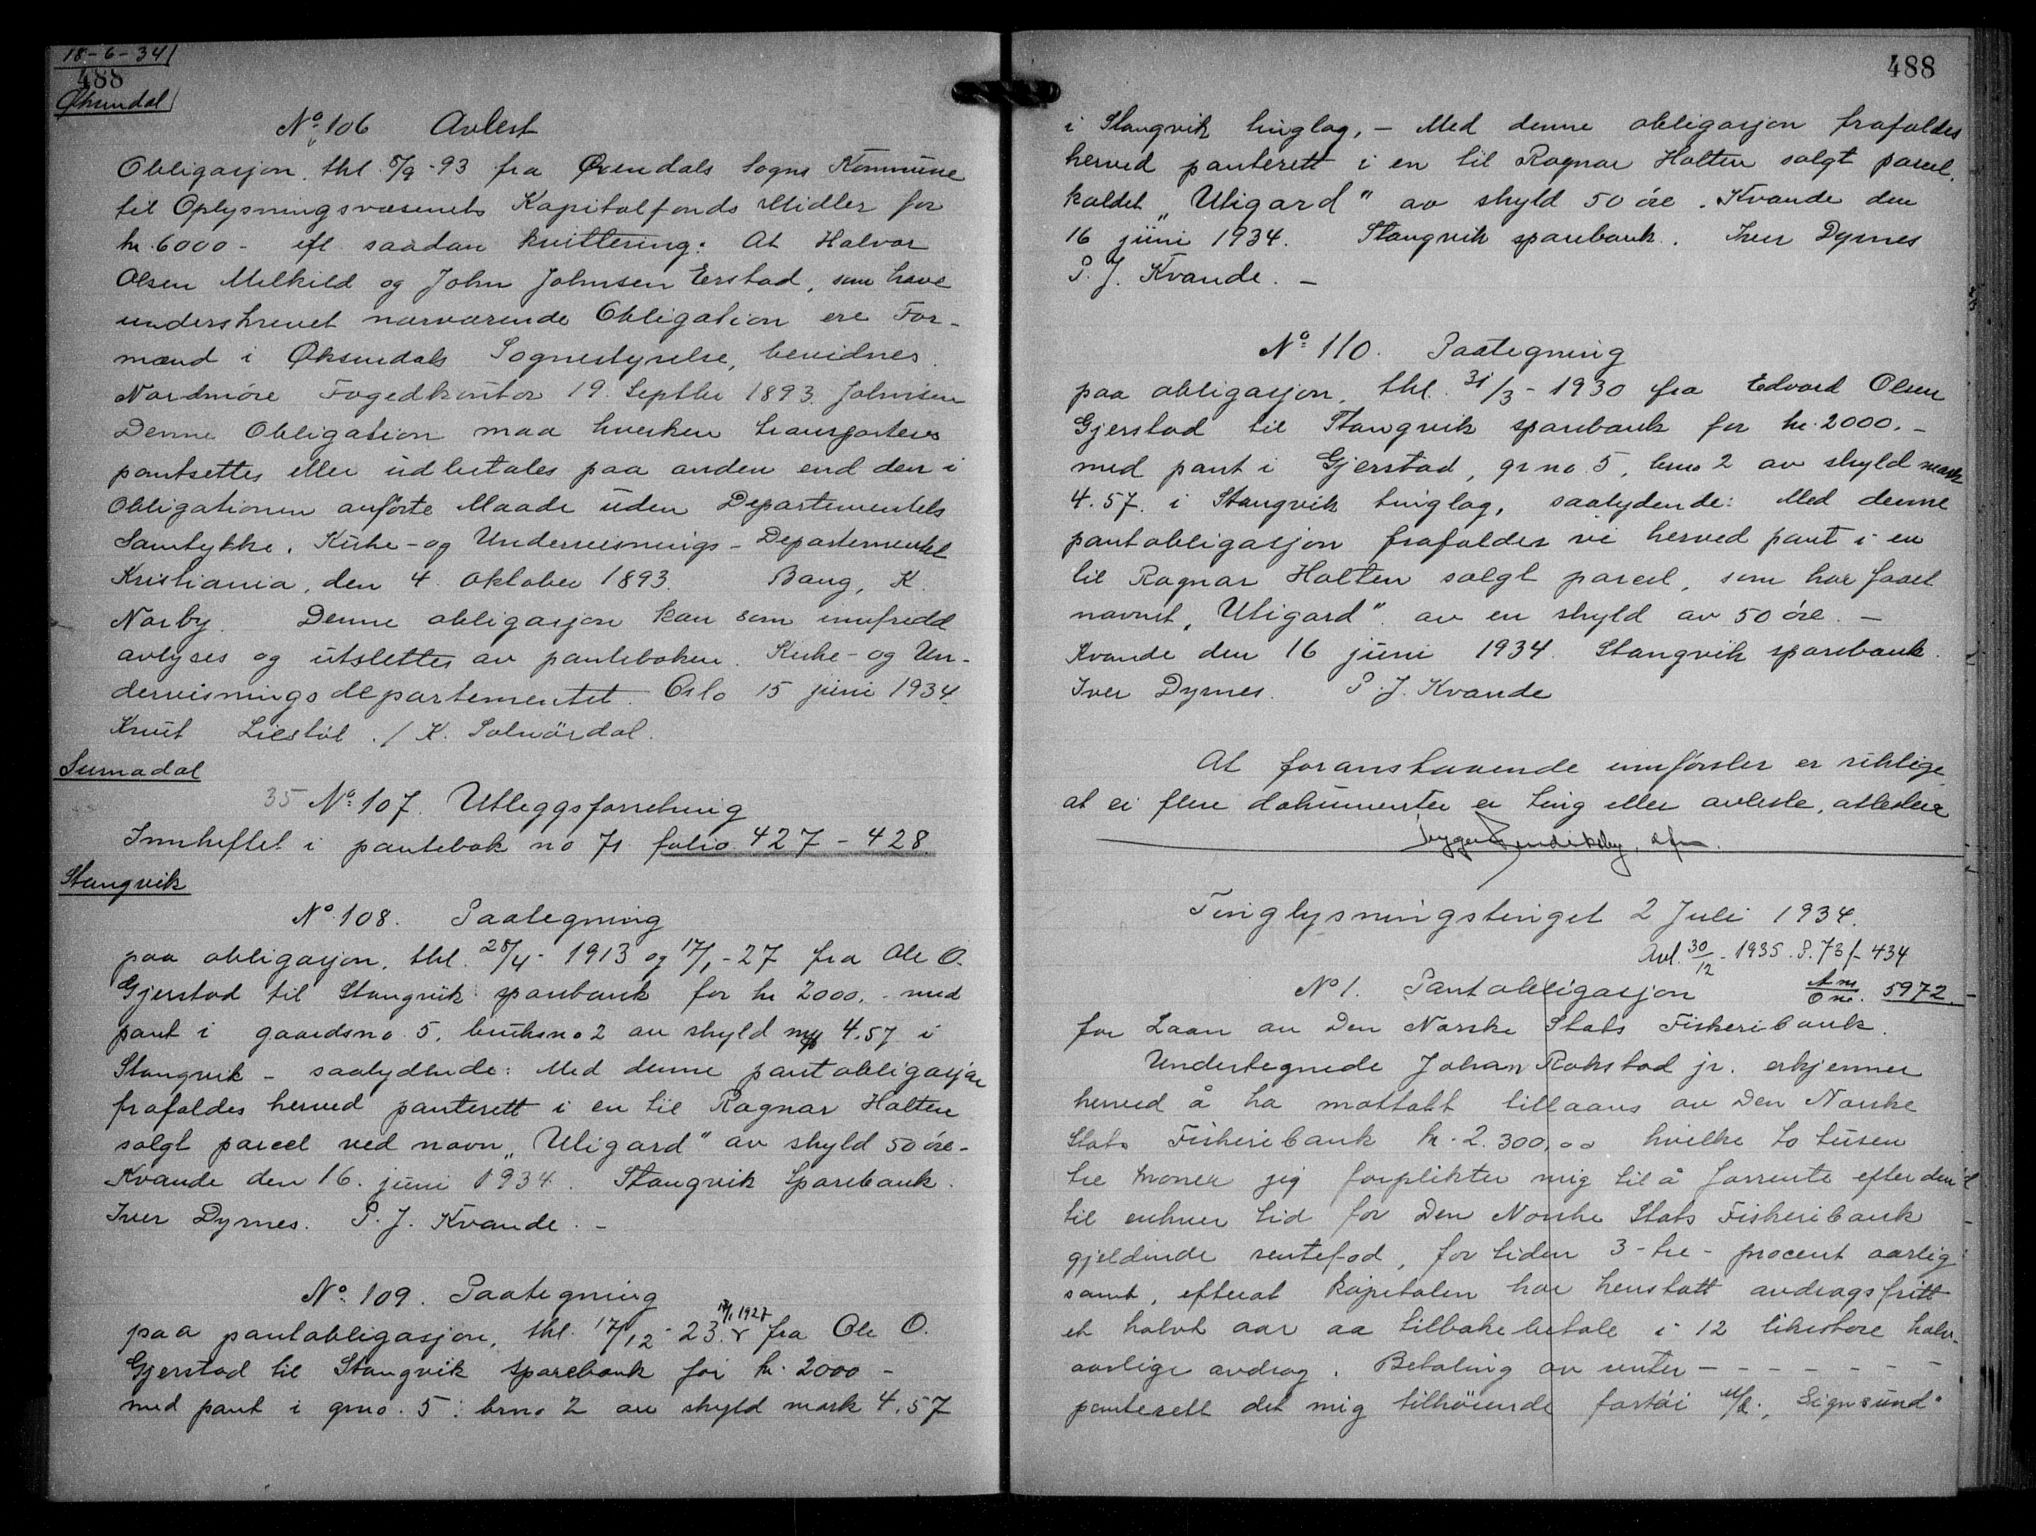 18-6-34
488
Øksendal
No. 106 Avlest
Obligasjon thl. 5/9-93 fra Øxendals Sogns Kommune
til Oplysningsvæsenets Kapitalfonds Midler for
kr. 6000 - efl saadan kvittering: At Halvor
Olsen Melkild og John Johnsen Erstad, som have
underskrevet nærværende Obligation ere For-
mænd i Øksendals Sognestyrelse, bevidnes.
Nordmöre Fogedkontor 19. Septbr 1893. Johnsen
Denne Obligation maa hverken transporteres
pantsettes eller udbetales paa anden end den i
Obligationen anförte Maade uden Departementets
Samtykke. Kirke- og Undervisnings-Departementet
Kristiania, den 4. oktober 1893. Bang, K.
Narby. Denne obligasjon kan som innfridd
avlyses og utslettes av panteboken. Kirke- og Un-
dervisningsdepartementet. Oslo 15 juni 1934.
Knut Liestøl. / K. Solnördal.
Surnadal
35 No. 107. Utleggsforretning
Innheftet i pantebok no 71 folio 427 - 428
Stangvik
No. 108. Paategning
paa obligasjon, thl. 28/4 - 1913 og 17/1-27 fra Ole O.
Gjerstad til Stangvik sparebank for kr 2000.- med
pant i gaardsno 5, bruksno 2 av skyld mk 4,57 i
Stangvik - saalydende: Med denne pantobligasjon
frafaldes herved panterett i en til Ragnar Halten
solgt parcel ved navn „Utigard" av skyld 50 öre-
Kvande den 16. juni 1934. Stangvik Sparebank.
Iver Dyrnes. P. J. Kvande. -
No. 109. Paategning
paa pantobligasjon, thl. 17/12-23. 17/1 1927 fra Ole O.
Gjerstad til Stangvik sparebank for kr. 2000 -
med pant i grno. 5, brno 2 av skyld mark 4,57
488
i Stangvik tinglag, - Med denne obligasjon frafaldes
herved panterett i en til Ragnar Halten solgt parcel.
kaldet „Utigard" av skyld 50 öre. Kvande den
16 juni 1934. Stangvik sparebank. Iver Dyrnes
P. J. Kvande. -
No. 110. Paategning
paa obligasjon, thl. 31/3 - 1930 fra Edvard Olsen
Gjerstad til Stangvik sparebank for kr. 2000. -
med pant i Gjerstad, gr no. 5, brno 2 av skyld mark
4.57. i Stangvik tinglag, saalydende: Med denne
pantobligasjon frafalder vi herved pant i en
til Ragnar Halten solgt parcel, som har faaet
navnet „Utigard" av en skyld av 50 öre. -
Kvande den 16 juni 1934. Stangvik sparebank.
Iver Dyrnes. P. J. Kvande
At foranstaaende innførsler er riktige
at ei flere dokumenter er ting eller avleste, attesteres
Tinglysningstinget 2 Juli 1934.
Avl. 30/12 - 1935. P. 73 f - 434
No 1. Pantobligasjon 5972
for Laan av Den Norske Stats Fiskeribank.
Undertegnede Johan Rokstad jr. erkjenner
herved å ha mottatt tillaans av Den Norske
Stats Fiskeribank kr. 2.300,00 hvilke to tusen
tre kroner jeg forplikter mig til å forrente efter den
til enhver tid for Den Norske Stats Fiskeribank
gjeldende rentefod, for tiden 3 - tre - procent aarlig
samt, efterat kapitalen har henstaatt avdragsfritt
et halvt aar aa tilbakebetale i 12 likestore halv-
aarlige avdrag. Betaling av renter - - - - - - -
panterett det mig tilhöiende fartöi M/k. „Signsund"